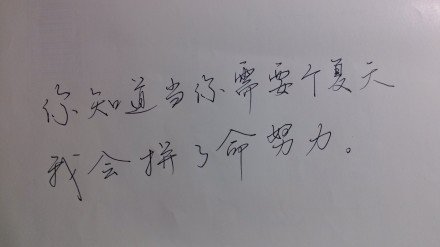 你知道当你需要个夏天
我会拼了命努力。